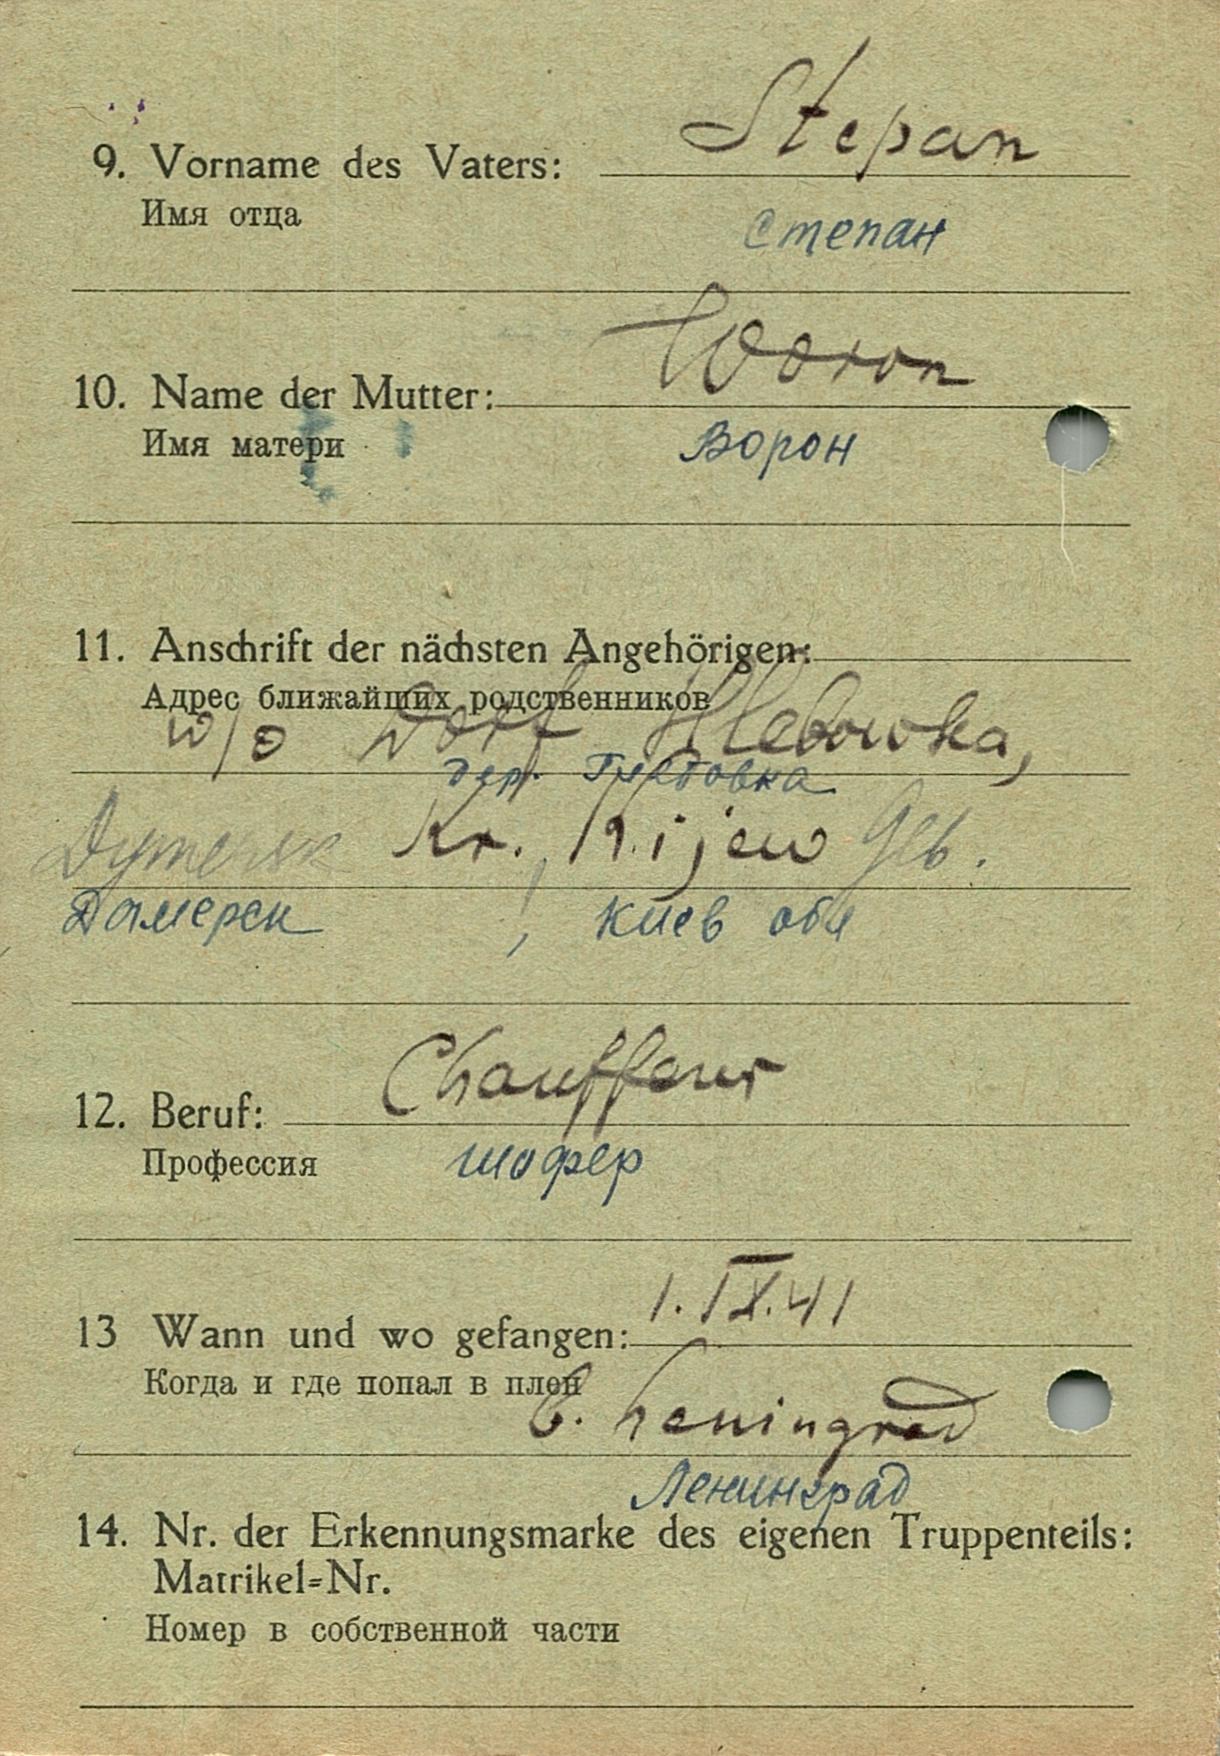 Stepan
9. Vorname des Vaters:
Имя отца
Степан
Woron
10. Name der Mutter:
Имя матери
Ворон
11. Anschrift der nächsten Angehörigen:
Адрес ближайших родственников
w/o Dorf Hlebowka,
дер.
Dymersk Kr., Kijew Geb.
Дамерск , Киев обл
Chauffeur
12. Beruf:
Профессия
шофер
1.IX.41
13 Wann und wo gefangen:
Когда и где попал в плен
b. Leningrad
Ленинград
14. Nr. der Erkennungsmarke des eigenen Truppenteils:
Matrikel=Nr.
Номер в собственной части